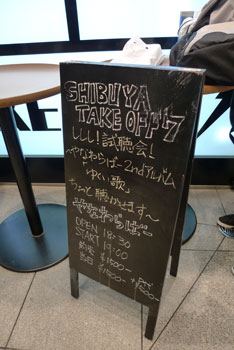 SHIBUYA
TAKE OFF 7
ししし!試聴会!
~やなわらばー2ndアルバム
歌
聴かせます~
やなわらばー
OPEN 18:30
START 19:00